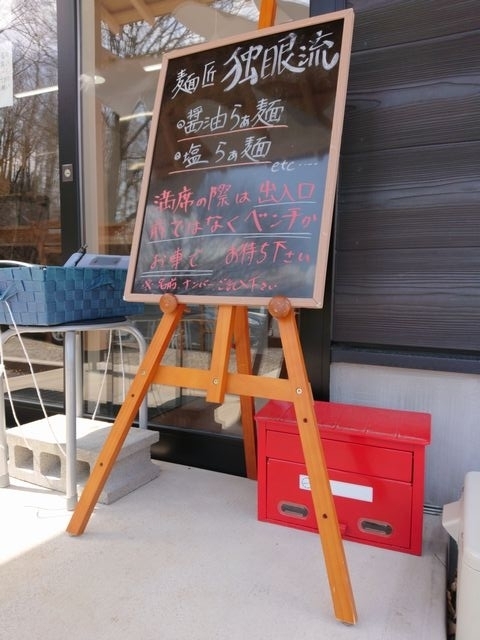 麺匠 独眼流
◎醤油らぁ麺
◎塩らぁ麺
etc....
満席の際は出入口
前ではなくベンチか
お車で お待ち下さい
※名前、ナンバーご記入下さい